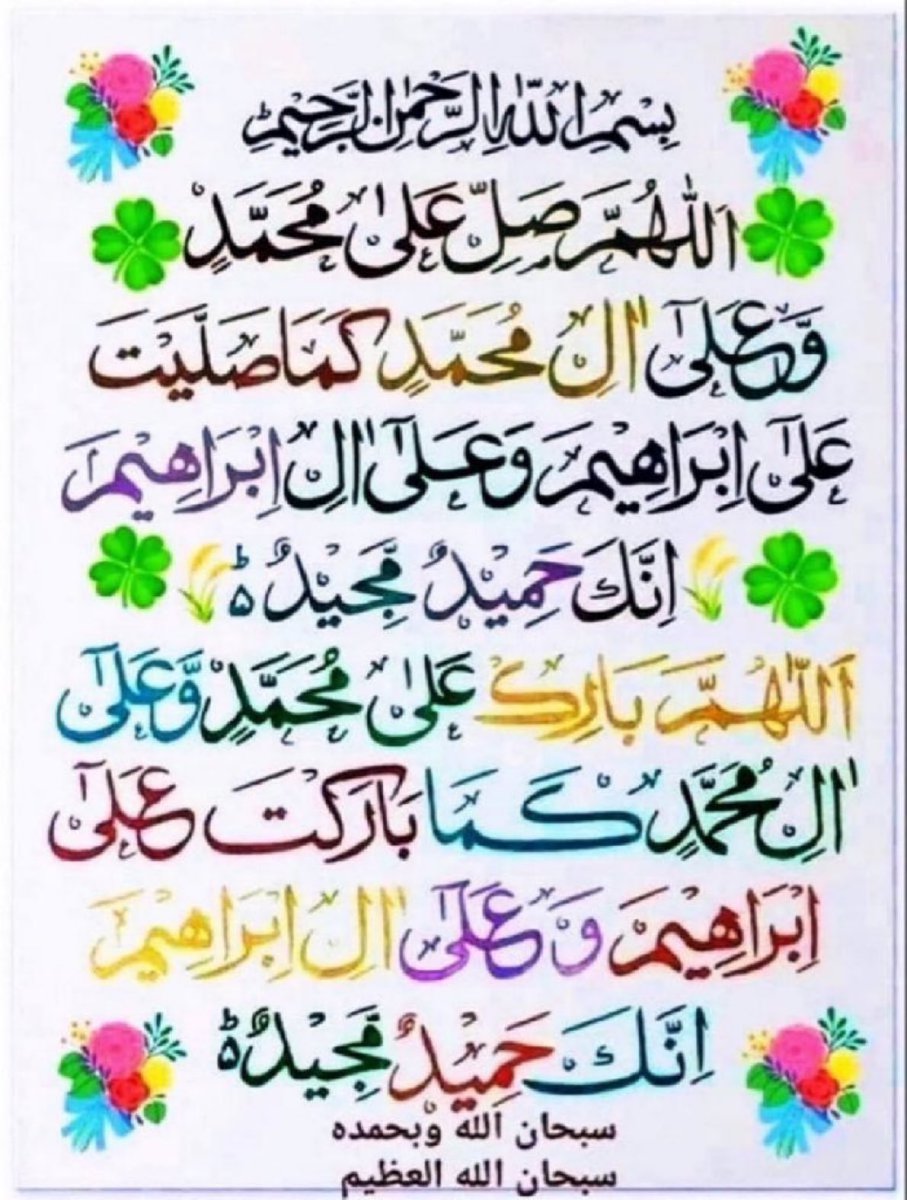 بِسْمِ اللهِ الرَّحْمٰنِ الرَّحِيْمِ ؕ
اَللّٰهُمَّ صَلِّ عَلٰى مُحَمَّدٍ
وَّعَلٰٓى اٰلِ مُحَمَّدٍ كَمَا صَلَّيْتَ
عَلٰٓى اِبْرَاهِيْمَ وَعَلٰٓى اٰلِ اِبْرَاهِيْمَ
اِنَّكَ حَمِيْدٌ مَّجِيْدٌ ؕ
اَللّٰهُمَّ بَارِكْ عَلٰى مُحَمَّدٍ وَّعَلٰٓى
اٰلِ مُحَمَّدٍ كَمَا بَارَكْتَ عَلٰٓى
اِبْرَاهِيْمَ وَعَلٰٓى اٰلِ اِبْرَاهِيْمَ
اِنَّكَ حَمِيْدٌ مَّجِيْدٌ ؕ
سبحان الله وبحمده
سبحان الله العظيم